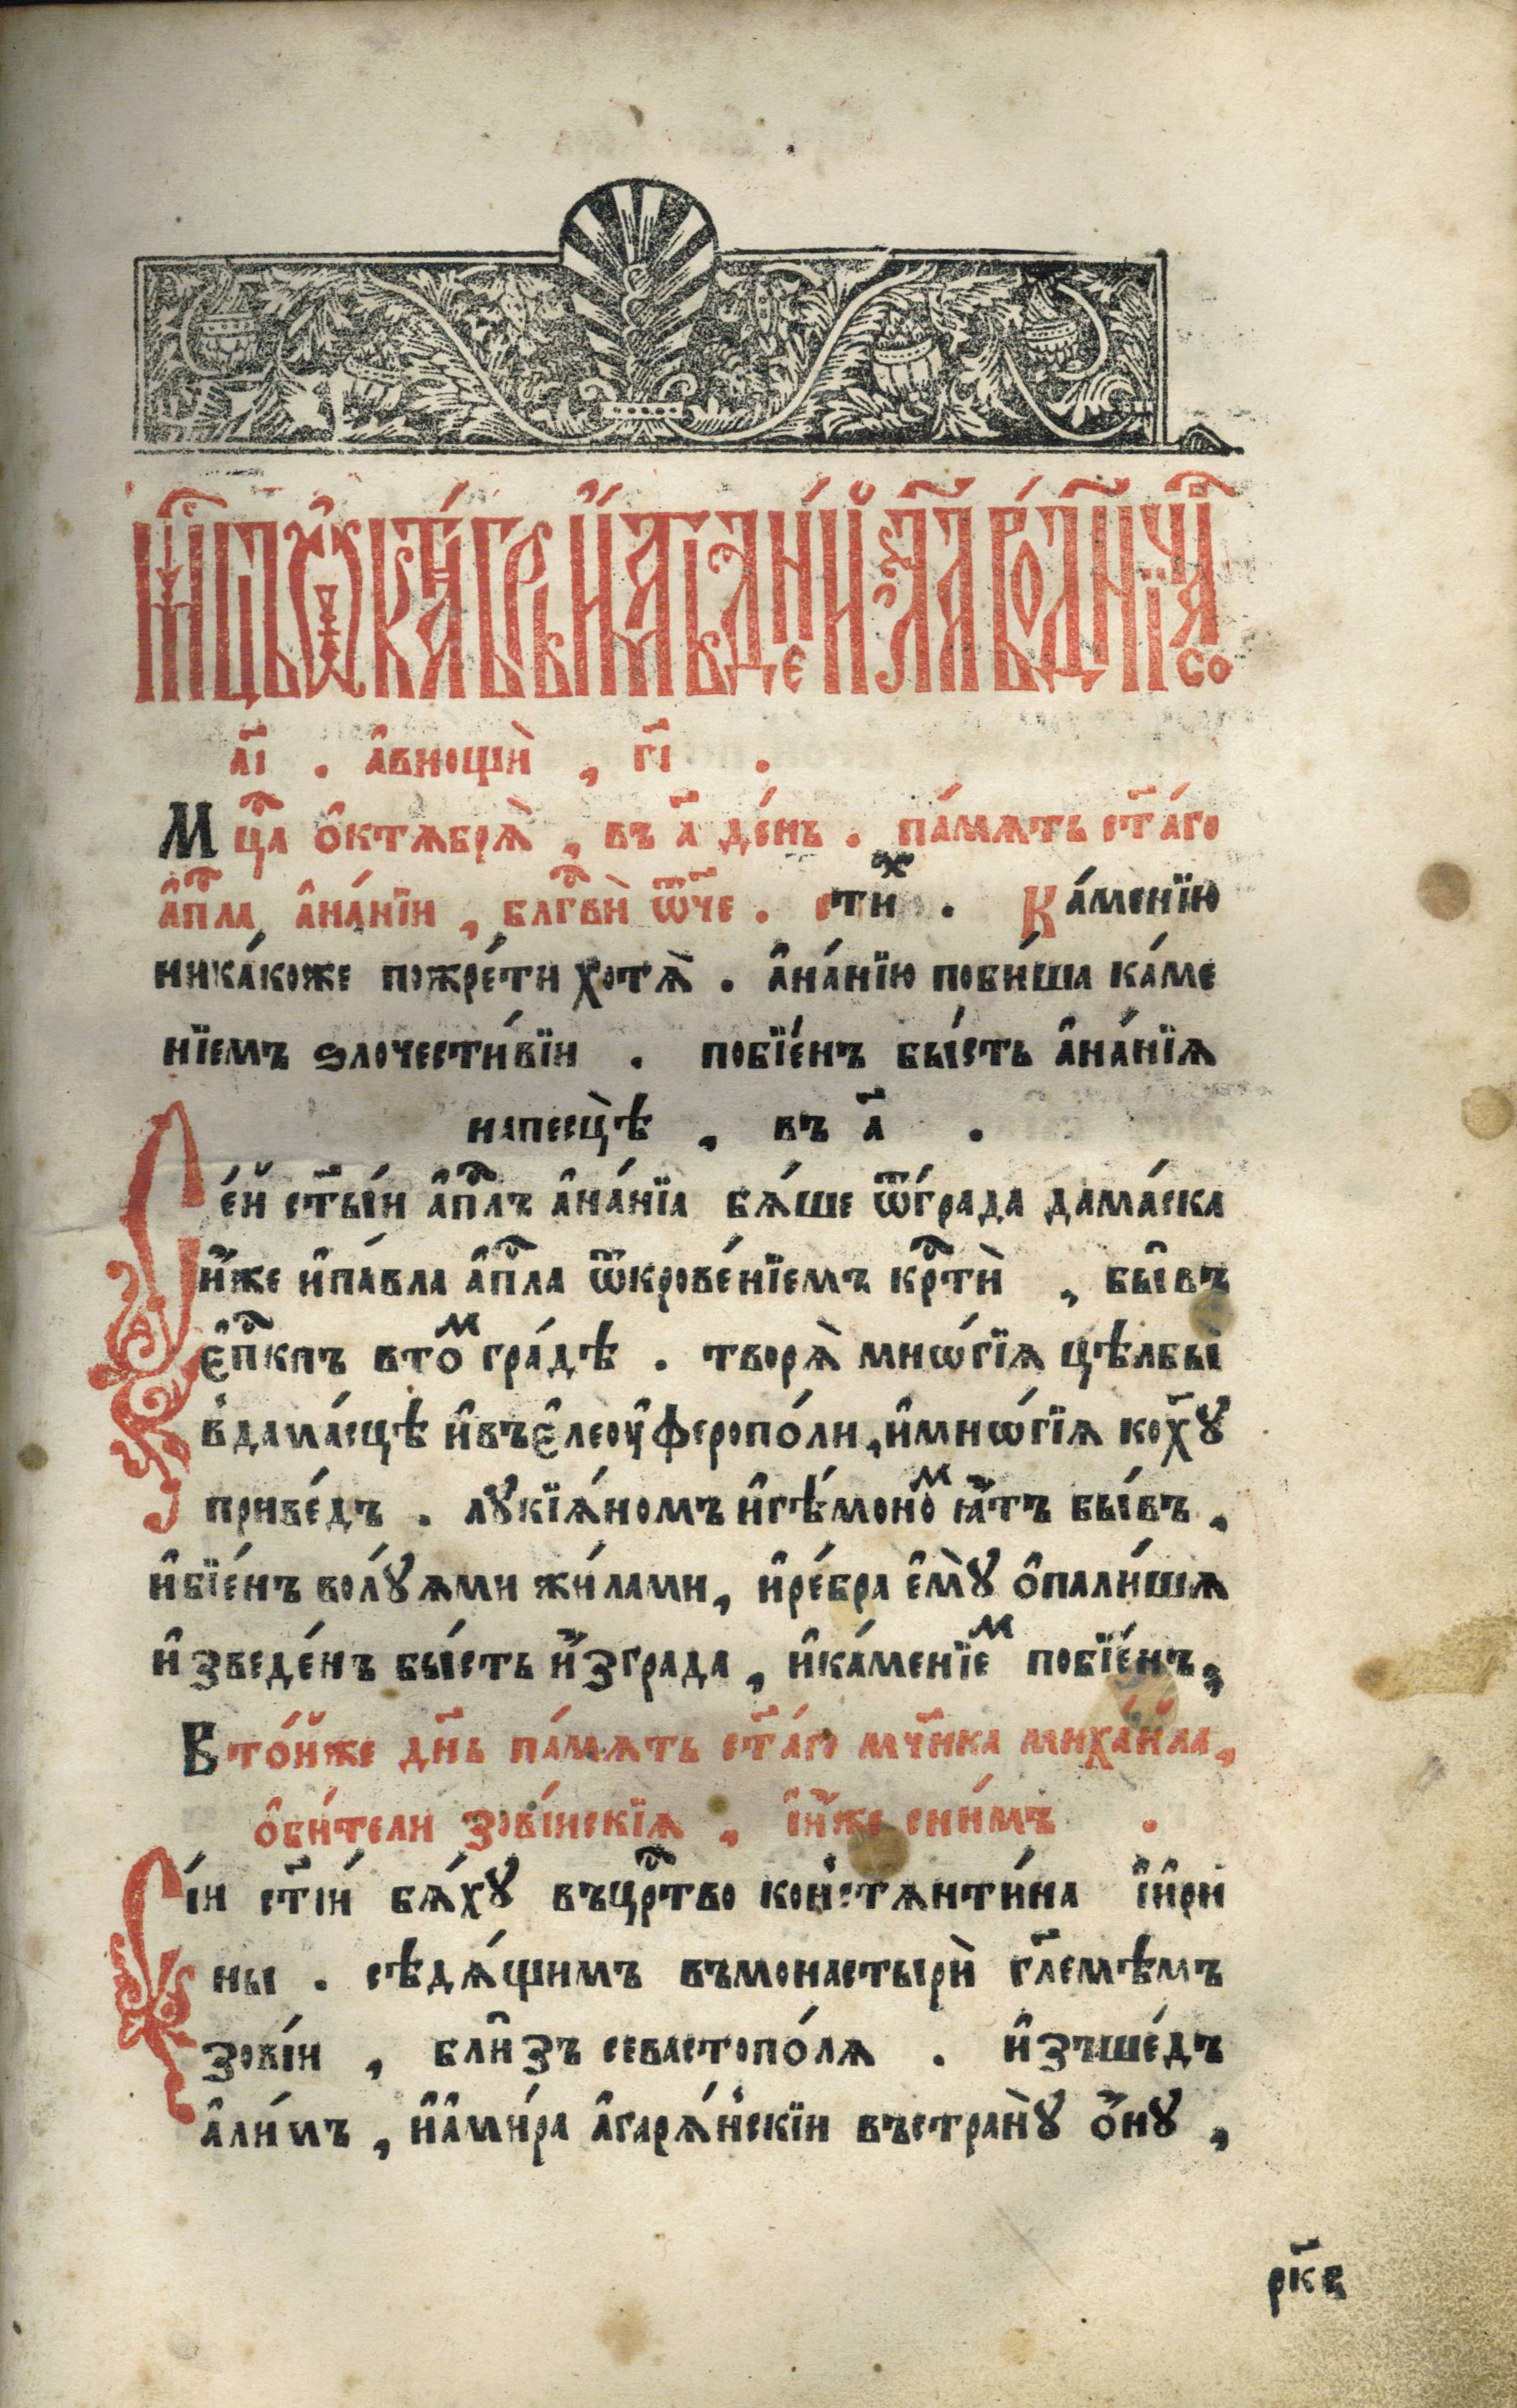 мцⷭ҇ъ ѻ҆ктѧ́брь и҆́мать дні́й л҃а во дни́ часо
а҃і . а҆внощѝ , г҃і .
Мцⷭ҇а ѻ҆ктѧбрѧ̀ , въ а҃ де́нь . па́мѧть ст҃а́го
а҆пⷭ҇ла а҆на́нїи , блгⷭ҇вѝ ѿ҆́ч҃е . стиⷯ . Ка́менїю
ника́коже пожре́ти хотѧ̀ . а҆на́нїю поби́ша ка́ме
нїемъ ѕлочести́вїи . побїе́нъ бы́сть а҆на́нїѧ
напесцѣ̀ , въ а҃ .
Се́й ст҃ы́и а҆пⷭ҇лъ а҆на́нїа бѧ́ше ѿ҆гра́да дама́ска
и҆́же и҆па́вла а҆пⷭ҇ла ѿ҆крове́нїемъ крⷭ҇тѝ , бы́въ
є҆пⷭ҇кпъ втоⷨ гра́дѣ . творѧ̀ мнѡ́гїѧ цѣлбы̀
вдама́сцѣ и҆въє҆леоу҆феропо́ли , и҆мнѡ́гїѧ кох҃ꙋ
приве́дъ . лꙋкїѧ́номъ и҆ге́мономⷨ ꙗ҆́тъ бы́въ ,
и҆бїе́нъ волꙋ́ѧми жи́лами , и҆ре́бра є҆мꙋ̀ ѻ҆пали́шѧ
и҆зведе́нъ бы́сть и҆згра́да , и҆ка́менїеⷨ побїе́нъ ,
Вто́йже дн҃ь па́мѧть ст҃а́го мч҃нка михаи́ла ,
ѻ҆би́тели зові́искїѧ , і҆и҆́же сни́мъ .
Сі́и ст҃і́и бѧ́хꙋ въцрⷭ҇тво ко́нстѧнти́на і҆и҆ри́
ны . сѣдѧ́щимъ въмонастырѝ гл҃емѣмъ
зові́и , бли́зъ севастопо́лѧ . и҆зъше́дъ
а҆ли́мъ , и҆а҆ми́ра а҆гарѧ́нскїи въстранꙋ̀ ѻ҆́нꙋ ,
рк҃в